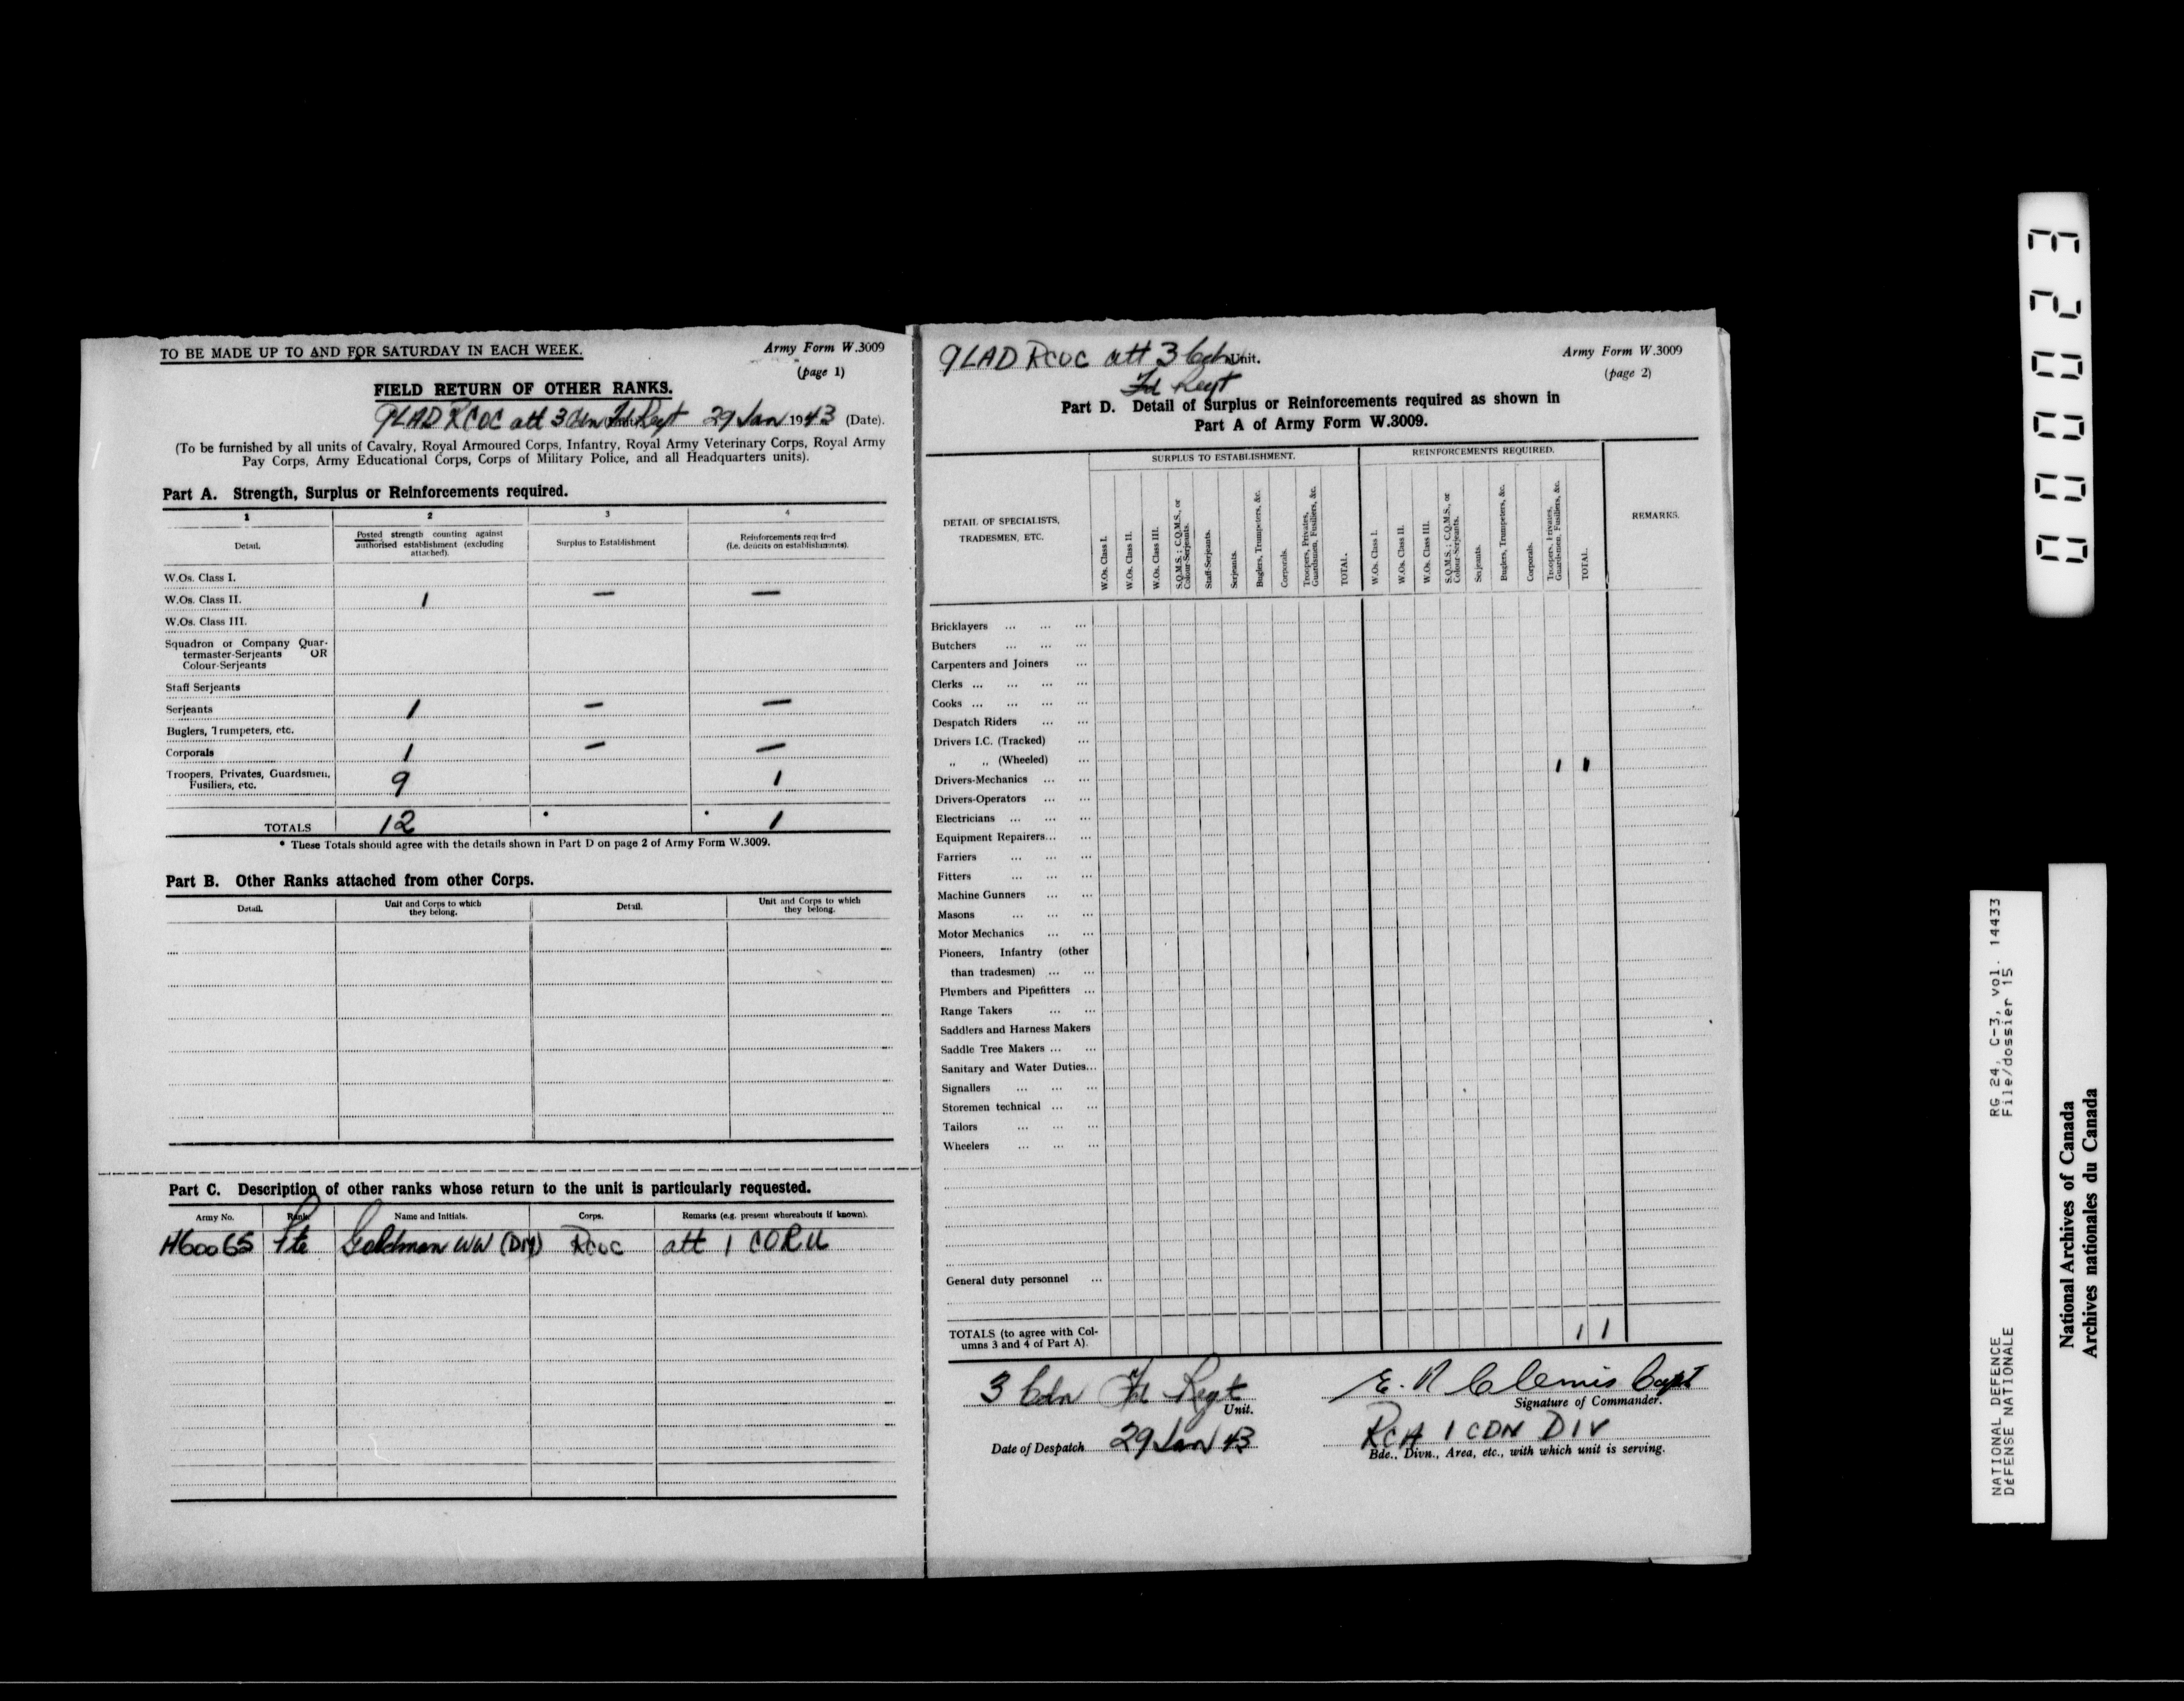 TO BE MADE UP TO AND FOR SATURDAY IN EACH WEEK.
Army Form W.3009
(page 1)
FIELD RETURN OF OTHER RANKS.
9 LAD RCOC att 3 Cdn Fd Regt 29 Jan 1943 (Date).
(To be furnished by all units of Cavalry, Royal Armoured Corps, Infantry, Royal Army Veterinary Corps, Royal Army
Pay Corps, Army Educational Corps, Corps of Military Police, and all Headquarters units).
Part A. Strength, Surplus or Reinforcements required.
1 2 3 4
Detail. Posted strength counting against authorised establishment (excluding attached). Surplus to Establishment Reinforcements required (i.e. deficits on establishments).
W.Os. Class I.
W.Os. Class II. 1 — —
W.Os. Class III.
Squadron or Company Quar-
termaster-Serjeants OR
Colour-Serjeants
Staff Serjeants
Serjeants 1 — —
Buglers, Trumpeters, etc.
Corporals 1 — —
Troopers, Privates, Guardsmen, 9 1
Fusiliers, etc.
TOTALS 12 * * 1
* These Totals should agree with the details shown in Part D on page 2 of Army Form W.3009.
Part B. Other Ranks attached from other Corps.
Detail. Unit and Corps to which they belong. Detail. Unit and Corps to which they belong.
Part C. Description of other ranks whose return to the unit is particularly requested.
Army No. Rank. Name and Initials. Corps. Remarks (e.g. present whereabouts if known).
H60065 Pte Goldman WW (DM) RCOC att 1 CORU
9 LAD RCOC att 3 Cdn Unit.
Fd Regt
Army Form W.3009
(page 2)
Part D. Detail of Surplus or Reinforcements required as shown in
Part A of Army Form W.3009.
DETAIL OF SPECIALISTS,
TRADESMEN, ETC.
SURPLUS TO ESTABLISHMENT.
W.Os. Class I.
W.Os. Class II.
W.Os. Class III.
S.Q.M.S.; C.Q.M.S., or
Colour-Serjeants.
Staff-Serjeants.
Serjeants.
Buglers, Trumpeters, &c.
Corporals.
Troopers, Privates,
Guardsmen, Fusiliers, &c.
TOTAL.
REINFORCEMENTS REQUIRED.
W.Os. Class I.
W.Os. Class II.
W.Os. Class III.
S.Q.M.S.; C.Q.M.S., or
Colour-Serjeants.
Serjeants.
Buglers, Trumpeters, &c.
Corporals.
Troopers, Privates,
Guardsmen, Fusiliers, &c.
TOTAL.
REMARKS.
Bricklayers ... ... ...
Butchers ... ... ...
Carpenters and Joiners ...
Clerks ... ... ... ...
Cooks ... ... ... ...
Despatch Riders ... ...
Drivers I.C. (Tracked) ...
„ „ (Wheeled) ... 1 1
Drivers-Mechanics ... ...
Drivers-Operators ... ...
Electricians ... ... ...
Equipment Repairers... ...
Farriers ... ... ...
Fitters ... ... ...
Machine Gunners ... ...
Masons ... ... ...
Motor Mechanics ... ...
Pioneers, Infantry (other
than tradesmen) ... ...
Plumbers and Pipefitters ...
Range Takers ... ...
Saddlers and Harness Makers
Saddle Tree Makers ... ...
Sanitary and Water Duties...
Signallers ... ... ...
Storemen technical ... ...
Tailors ... ... ...
Wheelers ... ... ...
General duty personnel ...
TOTALS (to agree with Col- 1 1
umns 3 and 4 of Part A).
3 Cdn Fd Regt
Unit.
E. R Clemis Capt
Signature of Commander.
Date of Despatch 29 Jan 43
RCA 1 CDN DIV
Bde., Divn., Area, etc., with which unit is serving.
000023
RG 24, C-3, vol. 14433
File/dossier 15
NATIONAL DEFENCE
DÉFENSE NATIONALE
National Archives of Canada
Archives nationales du Canada